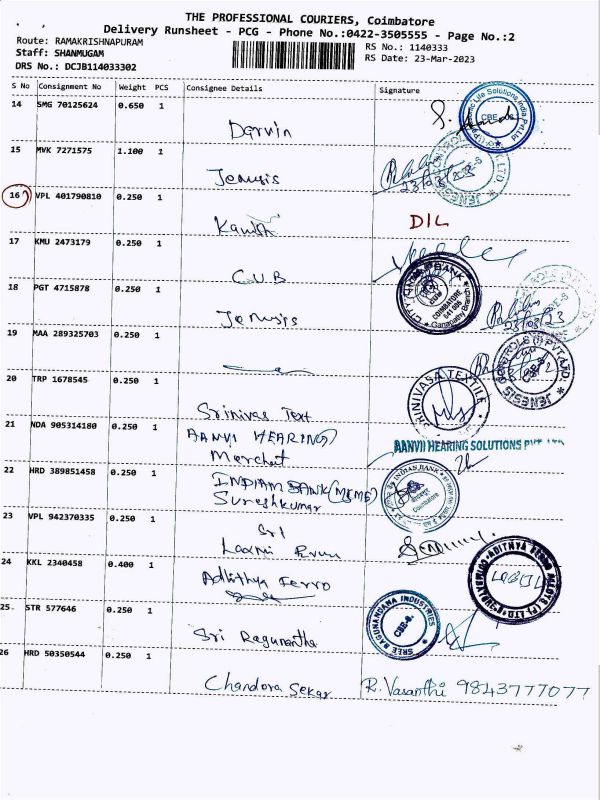 THE PROFESSIONAL COURIERS, Coimbatore
Delivery Runsheet - PCG - Phone No.:0422-3505555 - Page No.:2
Route: RAMAKRISHNAPURAM
RS No.: 1140333
Staff: SHANMUGAM
RS Date: 23-Mar-2023
DRS No.: DCJB114033302
S No Consignment No Weight PCS Consignee Details Signature
14 SMG 70125624 0.650 1
Darwin
CBE
15 MVK 7271575 1.100 1
Jenusis
16 VPL 401790810 0.250 1
DIL
17 KMU 2473179 0.250 1
C.U.B
CITY UNION BANK
COIMBATORE
641 006
Ganapathy Branch
18 PGT 4715878 0.250 1
Jenusis
19 MAA 289325703 0.250 1
JENESIS
20 TRP 1678545 0.250 1
Srinivas Text
SRINIVASA TEXTILE
21 NDA 905314180 0.250 1
AANVI HEARING
Merchat
AANVII HEARING SOLUTIONS PVT LTD
22 HRD 389851458 0.250 1
INDIAN BANK (MSME)
Sureshkumar
INDIAN BANK
Coimbatore
23 VPL 942370335 0.250 1
Sri
Laxmi
24 KKL 2340458 0.400 1
Adhithya Ferro
ADITHYA FERRO
25 STR 577646 0.250 1
Sri Ragunantha
SREE RAGUNANDANA INDUSTRIES
CBE-6.
26 HRD 50350544 0.250 1
Chandora Sekar
R. Vasanthi 9843777077